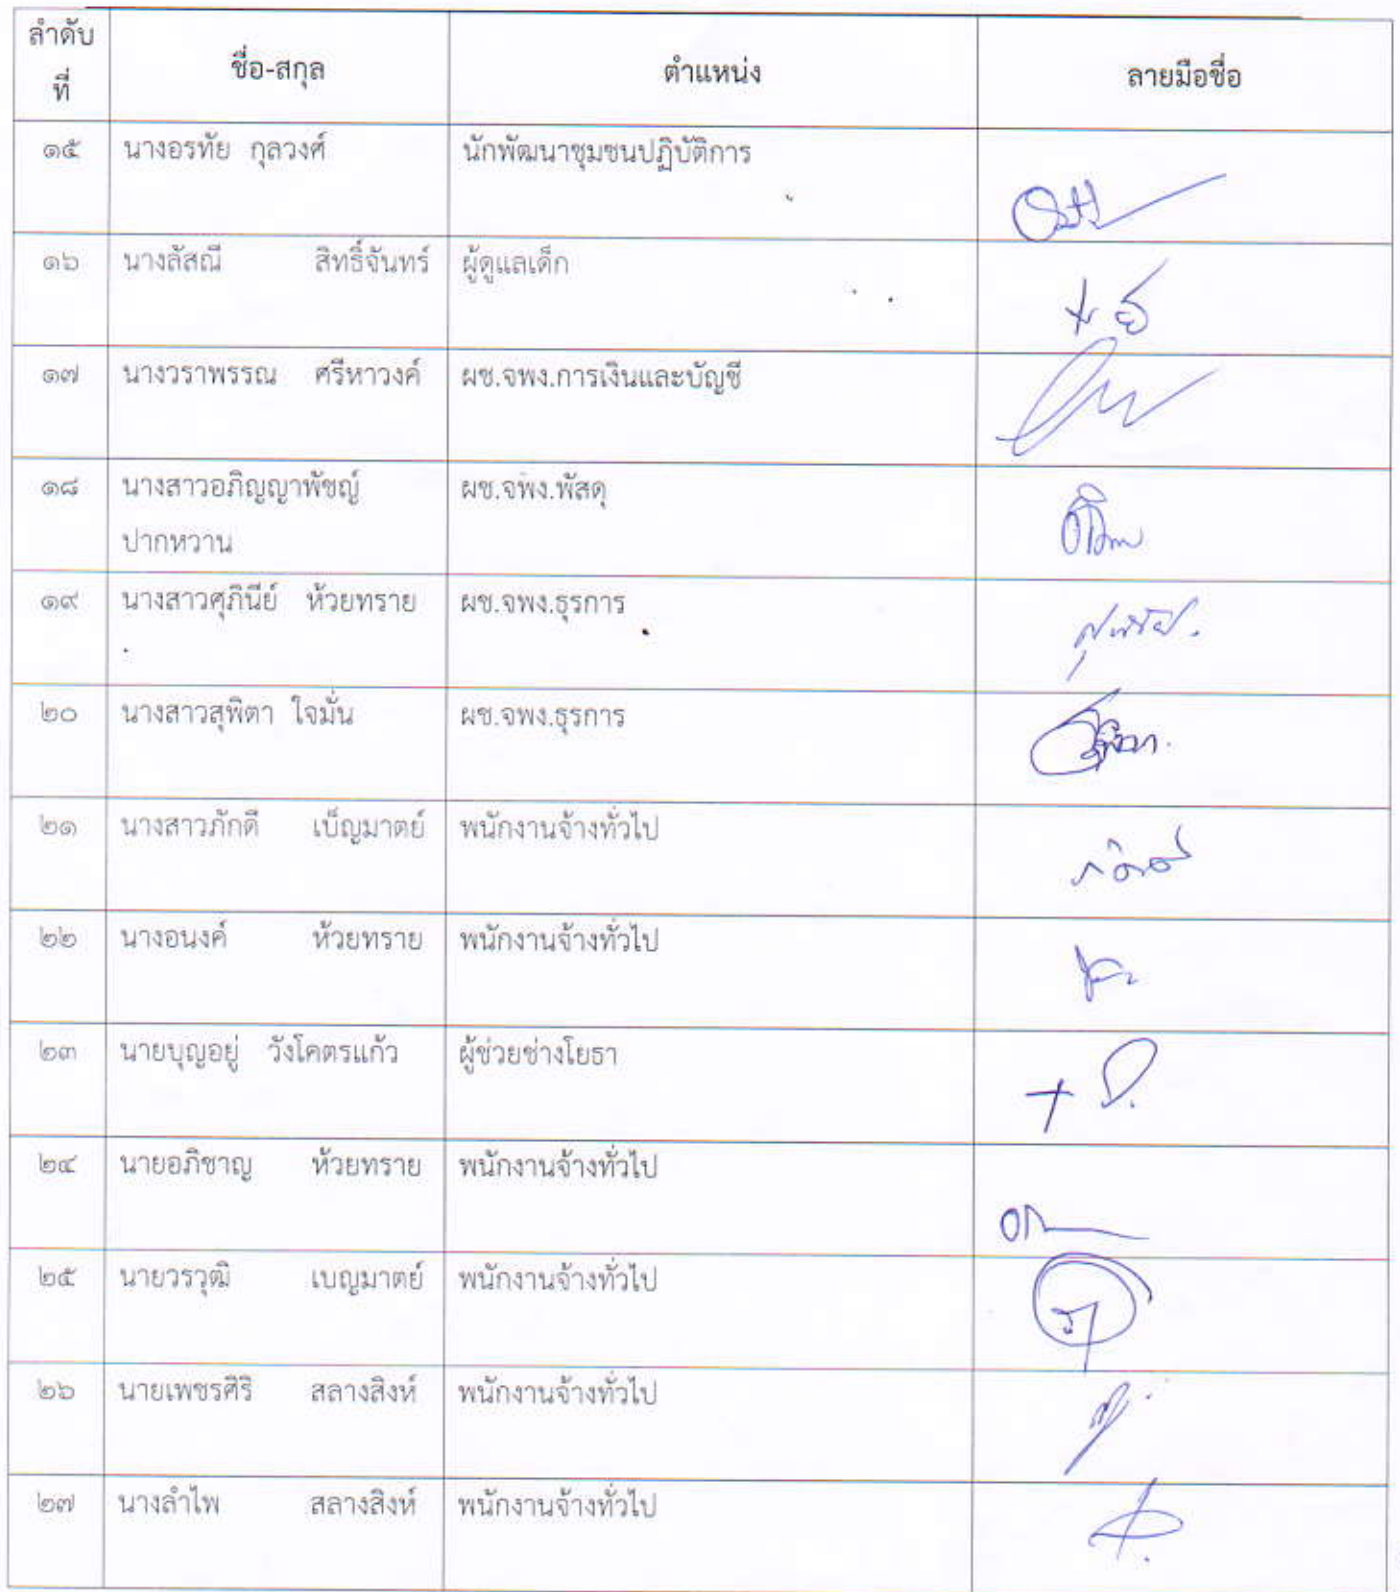 ลำดับ
ที่
ชื่อ-สกุล
ตำแหน่ง
ลายมือชื่อ
๑๕ นางอรทัย กุลวงศ์ นักพัฒนาชุมชนปฏิบัติการ
๑๖ นางลัสณี สิทธิ์จันทร์ ผู้ดูแลเด็ก
๑๗ นางวราพรรณ ศรีหาวงค์ ผช.จพง.การเงินและบัญชี
๑๘ นางสาวอภิญญาพัชญ์ ผช.จพง.พัสดุ
ปากหวาน
๑๙ นางสาวศุภินีย์ ห้วยทราย ผช.จพง.ธุรการ
๒๐ นางสาวสุพิตา ใจมั่น ผช.จพง.ธุรการ
๒๑ นางสาวภักดี เบ็ญมาตย์ พนักงานจ้างทั่วไป
๒๒ นางอนงค์ ห้วยทราย พนักงานจ้างทั่วไป
๒๓ นายบุญอยู่ วังโคตรแก้ว ผู้ช่วยช่างโยธา
๒๔ นายอภิชาญ ห้วยทราย พนักงานจ้างทั่วไป
๒๕ นายวรวุฒิ เบญมาตย์ พนักงานจ้างทั่วไป
๒๖ นายเพชรศิริ สลางสิงห์ พนักงานจ้างทั่วไป
๒๗ นางลำไพ สลางสิงห์ พนักงานจ้างทั่วไป